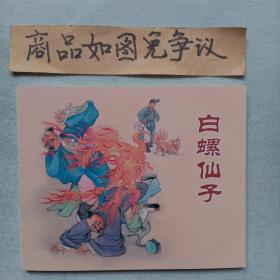 商品如图免争议
白螺仙子